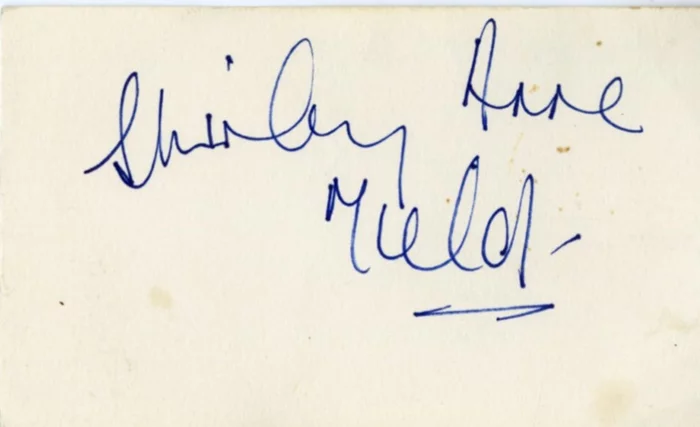 Shirley Anne
Field